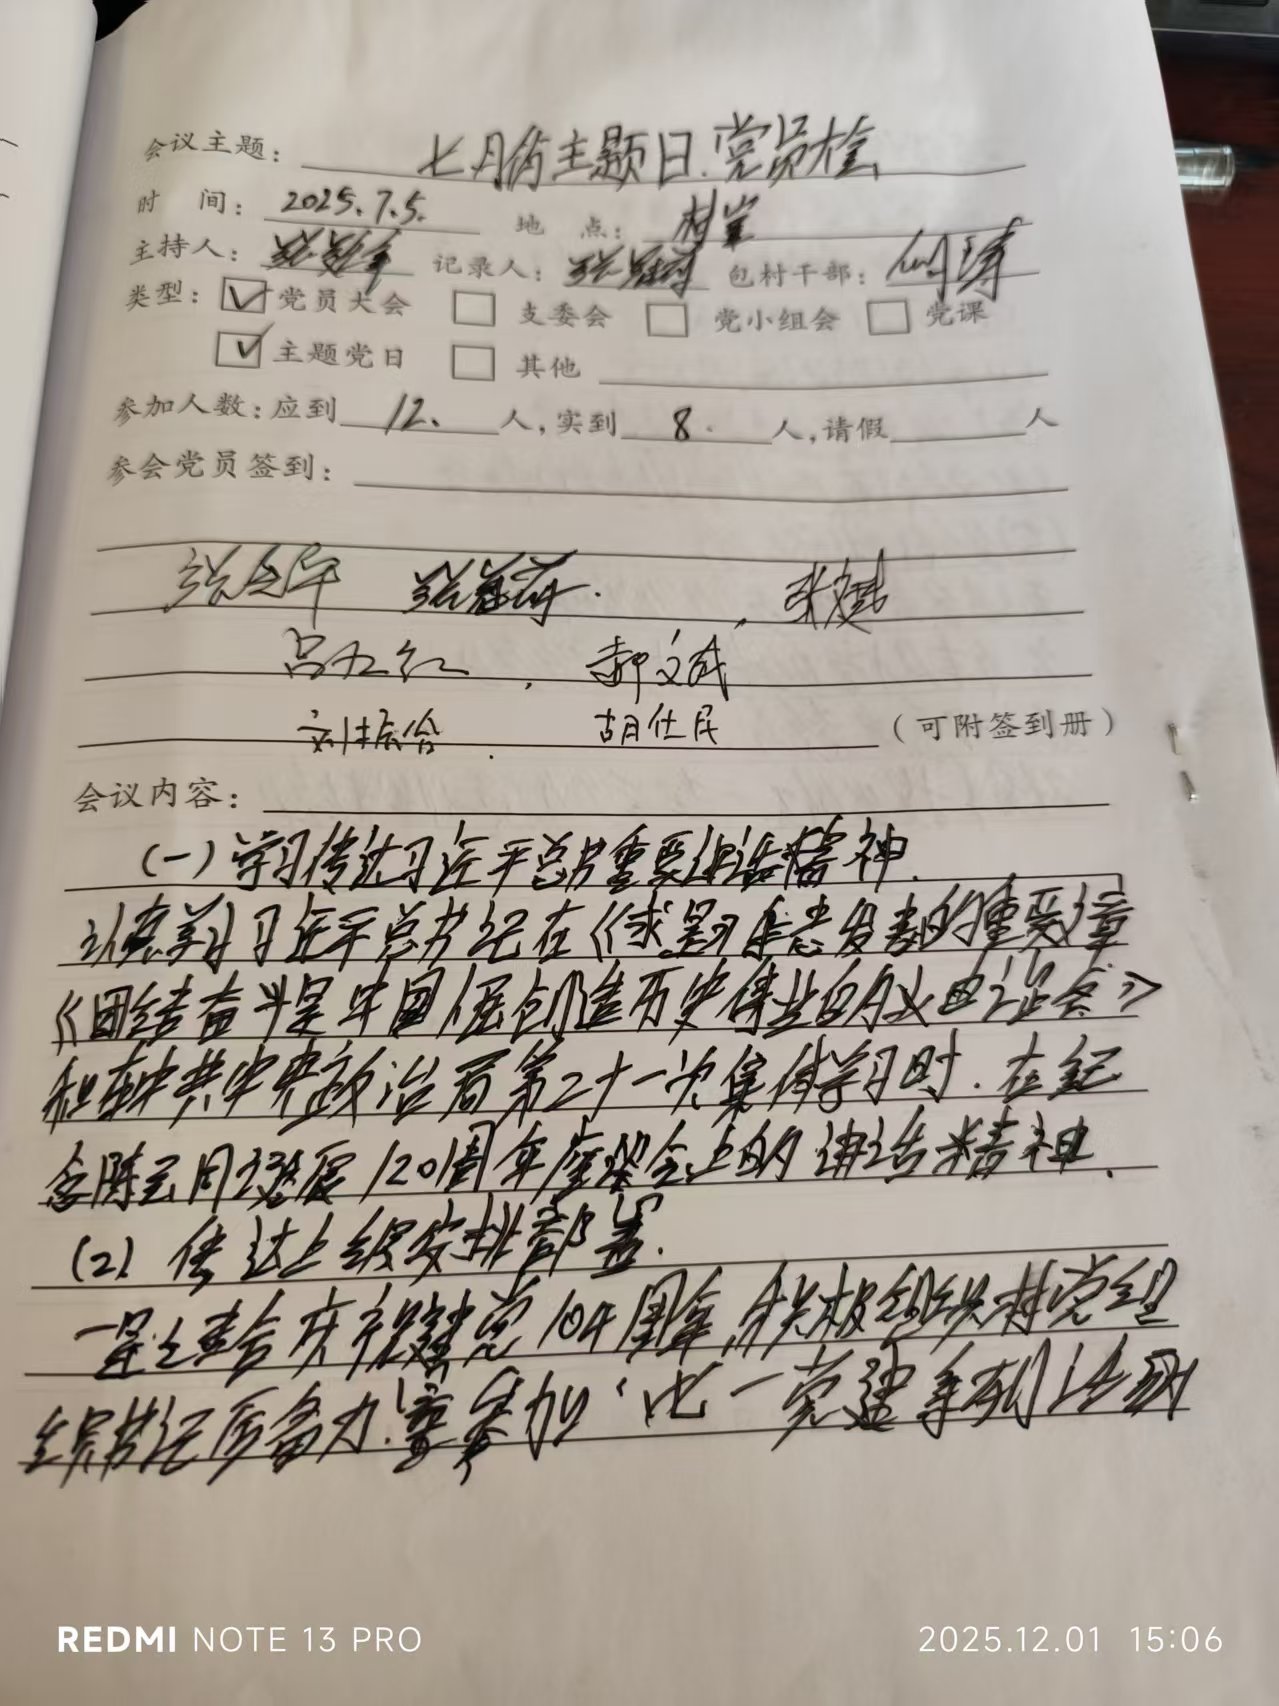 会议主题：七月份主题日.党员大会
时 间：2025.7.5. 地 点：村室
主持人： 记录人： 包村干部：
类型：☑党员大会 □支委会 □党小组会 □党课
☑主题党日 □其他
参加人数：应到12.人，实到8.人，请假 人
参会党员签到：
郝文成
胡仕民（可附签到册）
会议内容：
(一)学习传达习近平总书重要讲话精神.
认真学习习近平总书记在《求是》杂志发表的重要文章
《团结奋斗是中国人民创造历史伟业的必由之路》
和在中共中央政治局第二十一次集体学习时.在纪
念陈云同志诞辰120周年座谈会上的讲话精神.
(2) 传达上级安排部署.
一是结合庆祝建党104周年,积极组织村党组
织书记后备力 参加 七一党建系列活动
REDMI NOTE 13 PRO
2025.12.01 15:06